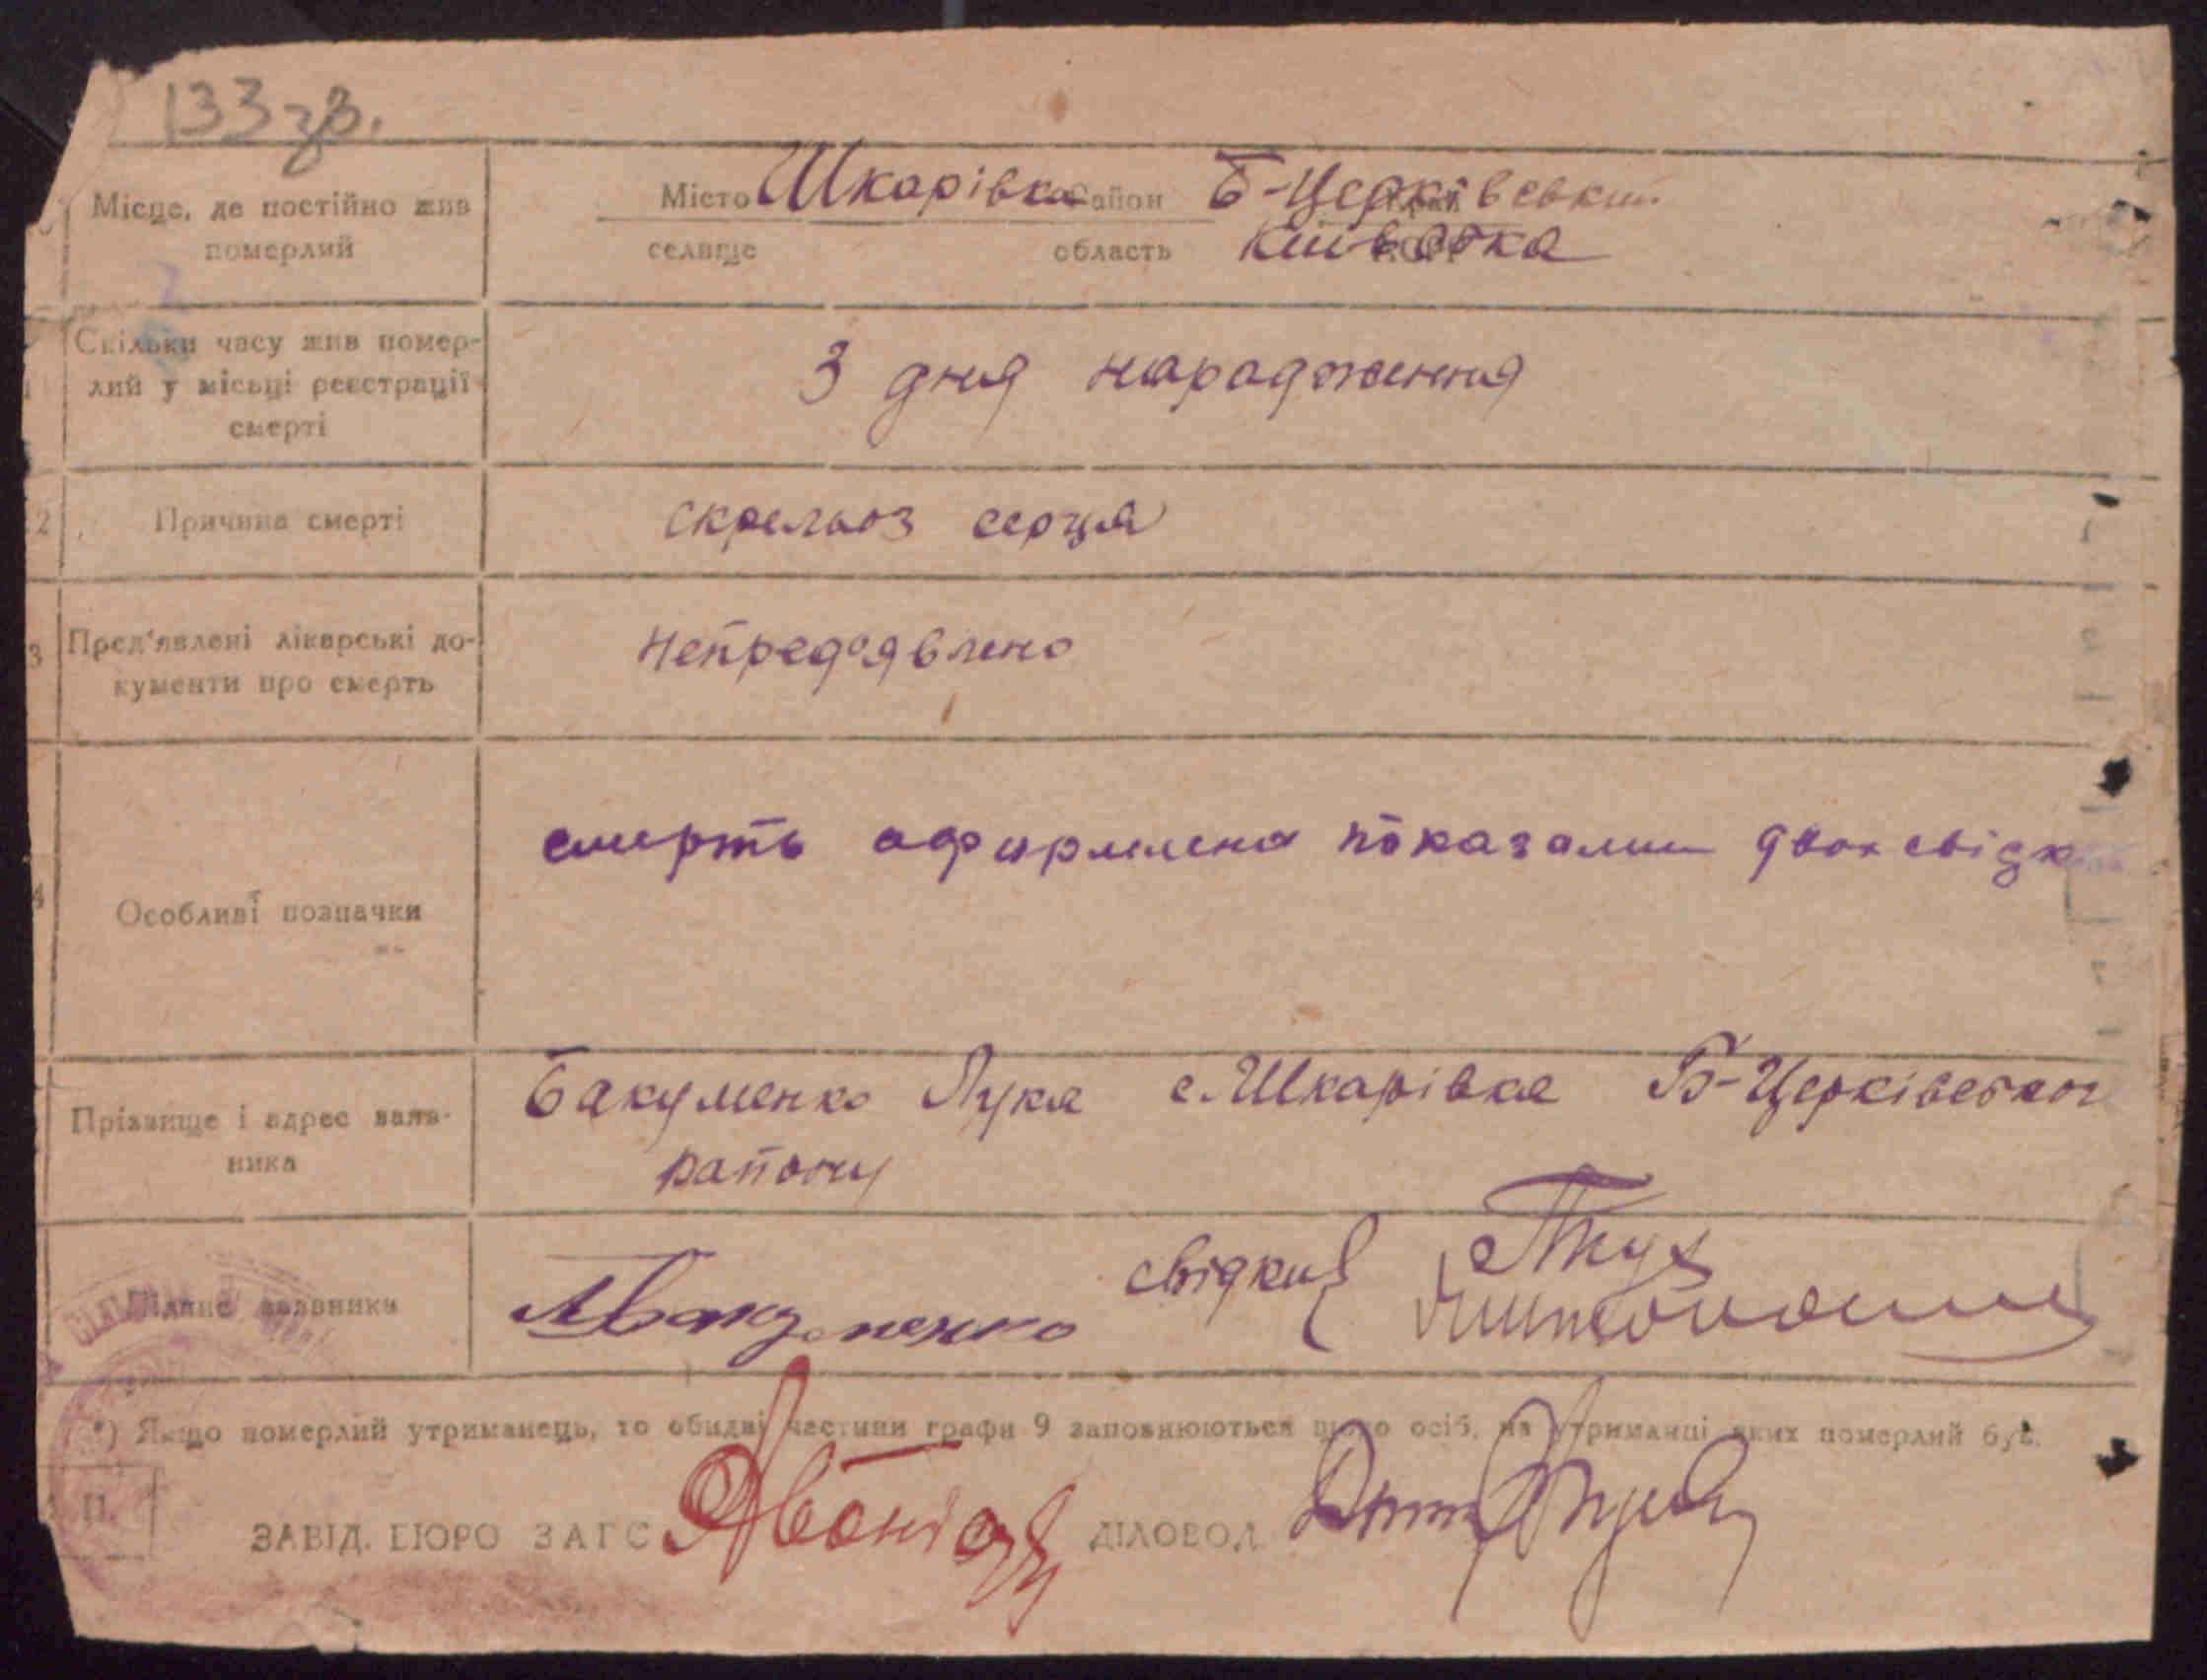 133 зв.
Місце, де постійно жив померлий
Місто Шкарівка район Б-Церківський
селище область Київська
Скільки часу жив помер-
лий у місьці реєстрації
смерті
3 дня нарадження
2 Причина смерті
скрельоз серця
3 Пред'явлені лікарські до-
кументи про смерть
непредъявлено
4 Особливі позначки
смерть аформлена показами двох свідк
Прізвище і адрес заяв-
ника
Бакуменко Лука с. Шкарівка Б-Церківског
району
Підпис заявника
ЛБакуменко свідки
*) Якщо померлий утриманець, то обидві частини графи 9 заповнюються щодо осіб, на утриманці яких померлий був.
П.
ЗАВІД. БЮРО ЗАГС
ДІЛОВОД